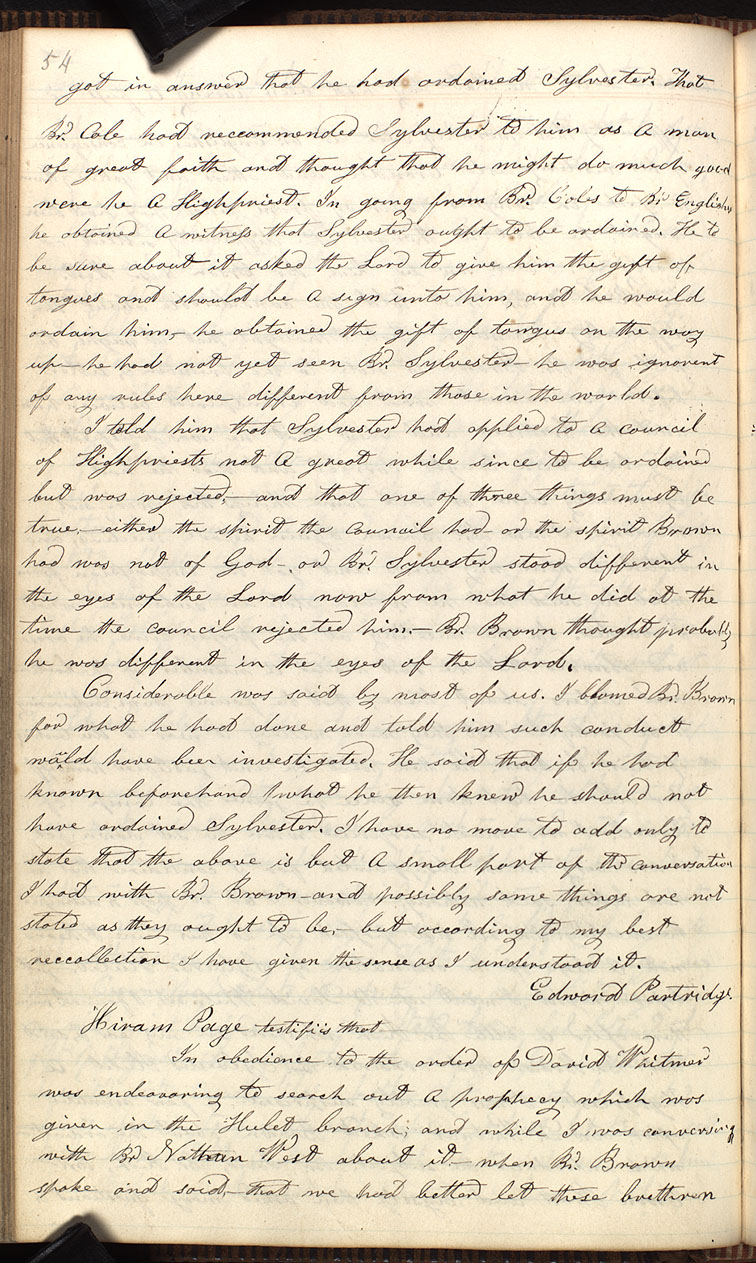 54
got in answer that he had ordained Sylvester. That
Br. Cole had reccommended Sylvester to him as a man
of great faith and thought that he might do much good
were he a Highpriest. In going from Br. Coles to Br Englishs
he obtained a witness that Sylvester ought to be ordained. He to
be sure about it asked the Lord to give him the gift of
tongues and should be a sign unto him, and he would
ordain him,– he obtained the gift of tongus on the way
up– he had not yet seen Br. Sylvester– he was ignorent
of any rules here different from those in the world.
I told him that Sylvester had applied to a council
of Highpriests not a great while since to be ordained
but was rejected,– and that one of three things must be
true,– either the spirit the council had– or the spirit Brown
had was not of God–, or Br. Sylvester stood different in
the eyes of the Lord now from what he did at the
time the council rejected him.– Br. Brown thought probably
he was different in the eyes of the Lord.
Considerable was said by most of us. I blamed Br. Brown
for what he had done and told him such conduct
would have been investigated. He said that if he had
known beforehand what he then knew he should not
have ordained Sylvester. I have no more to add only to
state that the above is but a small part of the conversation
I had with Br. Brown– and possibly some things are not
stated as they ought to be,– but according to my best
reccollection I have given the sense as I understood it.
Edward Partridge.
Hiram Page testifiis that
In obedience to the order of David Whitmer
was endeavaring to search out a prophecy which was
given in the Hulet branch; and while I was conversing
with Br Nathan West about it– when Br. Brown
spoke and said,– that we had better let these brethren